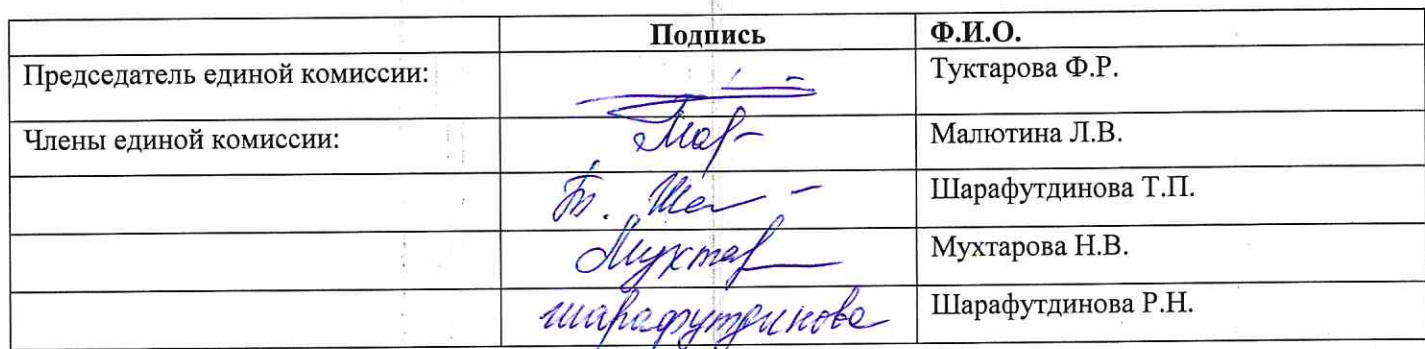 Подпись Ф.И.О.
Председатель единой комиссии: Туктарова Ф.Р.
Члены единой комиссии: Малютина Л.В.
Шарафутдинова Т.П.
Мухтар Мухтарова Н.В.
шарафутдинова Шарафутдинова Р.Н.